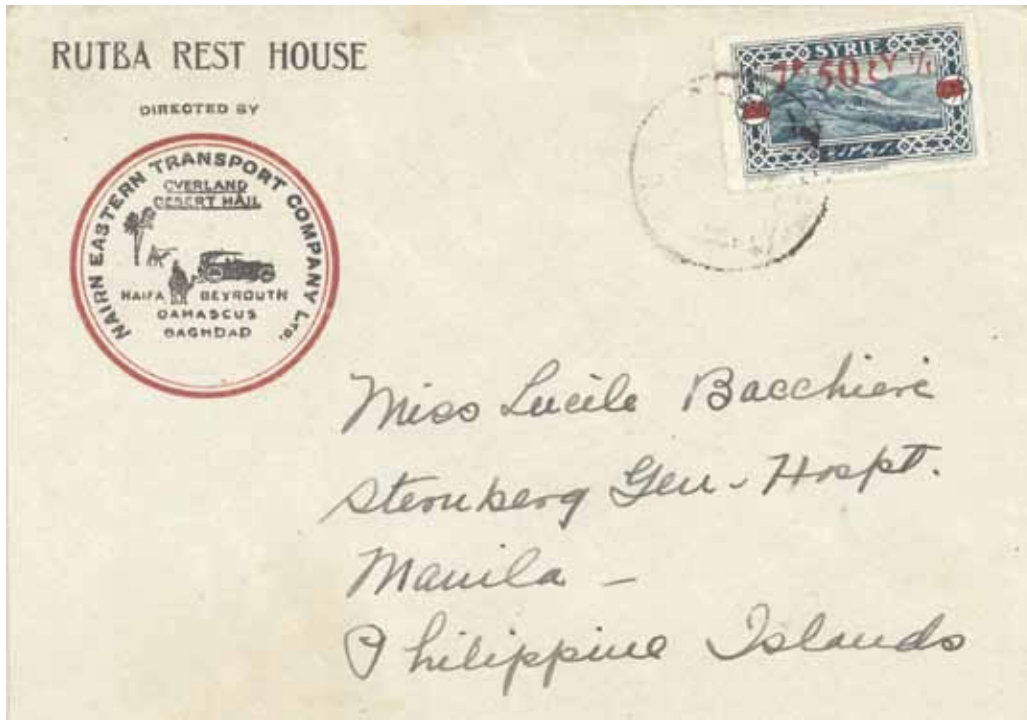 RUTBA REST HOUSE
DIRECTED BY
NAIRN EASTERN TRANSPORT COMPANY LTD.
OVERLAND
DESERT MAIL
HAIFA BEYROUTH
DAMASCUS
BAGHDAD
SYRIE
50
Miss Lucile Bacchieri
Sternberg Gen - Hospt.
Manila -
Philippine Islands